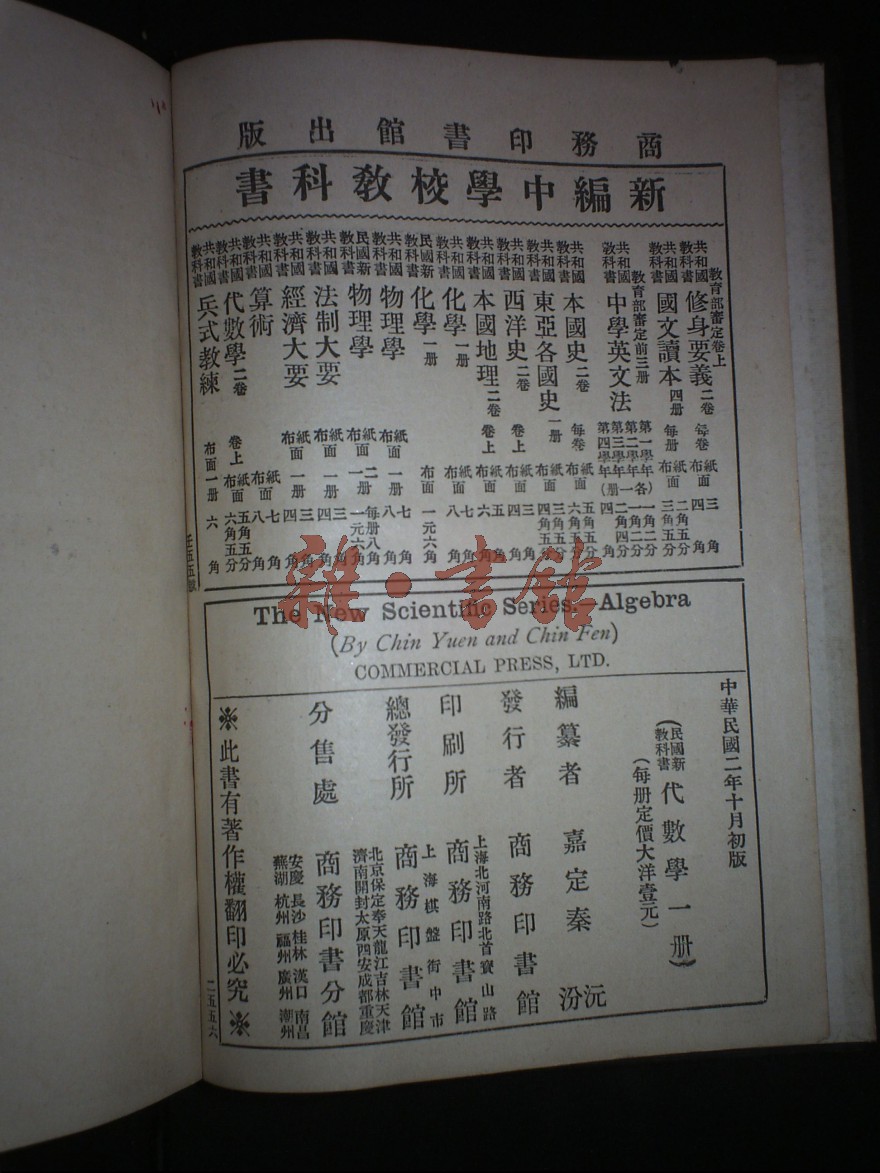 商務印書館出版
新編中學校教科書
教育部審定卷上
共和國教科書 修身要義 二卷 每卷 紙面 三角 布面 四角
共和國教科書 國文讀本 四册 每册 紙面 二角五分 布面 三角五分
教育部審定前三册
共和國教科書 中學英文法
共和國教科書 本國史 二卷 每卷 紙面 五角五分 布面 六角五分
共和國教科書 東亞各國史 一册 紙面 三角五分 布面 四角五分
共和國教科書 西洋史 二卷 卷上 紙面 三角 布面 四角
共和國教科書 本國地理 二卷 卷上 紙面 五角 布面 六角
共和國教科書 化學 一册 紙面 七角 布面 八角
民國新教科書 化學 一册 布面 一元六角
共和國教科書 物理學 紙面 一册 七角 布面 八角
民國新教科書 物理學 紙面 二册 布面
共和國教科書 法制大要 紙面 一册 三角 布面 四角
共和國教科書 經濟大要 紙面 一册 三角 布面 四角
共和國教科書 算術 紙面 七角 布面 八角
共和國教科書 代數學 二卷 卷上 紙面 五角五分 布面 六角五分
共和國教科書 兵式教練 布面 一册 六角
The New Scientific Series.—Algebra
(By Chin Yuen and Chin Fen)
COMMERCIAL PRESS, LTD.
中華民國二年十月初版
(民國新教科書 代數學一册)
(每册定價大洋壹元)
編纂者 嘉定秦沅 汾
發行者 商務印書館
印刷所 上海北河南路北首寶山路 商務印書館
總發行所 上海棋盤街中市 商務印書館
分售處 北京保定奉天龍江吉林天津
濟南開封太原西安成都重慶
商務印書分館
安慶 長沙 桂林 漢口 南昌
蕪湖 杭州 福州 廣州 潮州
※此書有著作權翻印必究※
二五五六
雜·書館